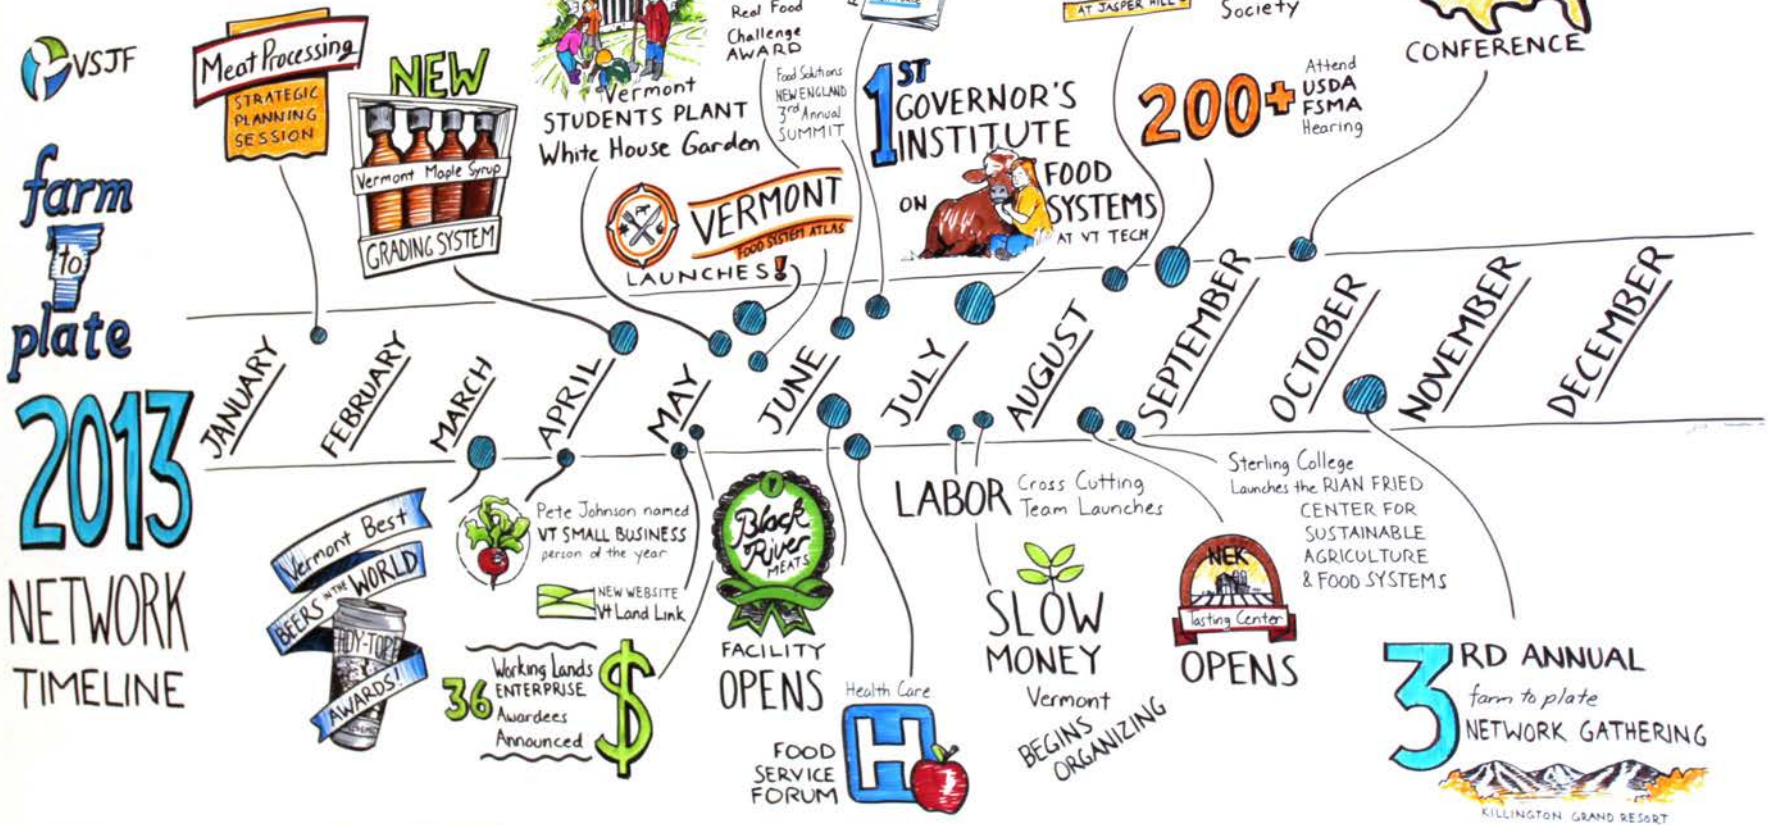 VSJF
farm
to
plate
2013
NETWORK
TIMELINE
Meat Processing
STRATEGIC
PLANNING
SESSION
NEW
Vermont Maple Syrup
GRADING SYSTEM
Vermont
STUDENTS PLANT
White House Garden
Real Food
Challenge
AWARD
Food Solutions
NEW ENGLAND
3rd Annual
SUMMIT
VERMONT
FOOD SYSTEM ATLAS
LAUNCHES!
1ST
GOVERNOR'S
INSTITUTE
ON
FOOD
SYSTEMS
AT VT TECH
AT JASPER HILL
Society
200+
Attend
USDA
FSMA
Hearing
CONFERENCE
JANUARY
FEBRUARY
MARCH
APRIL
MAY
JUNE
JULY
AUGUST
SEPTEMBER
OCTOBER
NOVEMBER
DECEMBER
Vermont Best
BEERS IN THE WORLD
AWARDS!
Pete Johnson named
VT SMALL BUSINESS
person of the year
NEW WEBSITE
Vt Land Link
36
Working Lands
ENTERPRISE
Awardees
Announced
$
Black
River
MEATS
FACILITY
OPENS
Health Care
H
FOOD
SERVICE
FORUM
LABOR
Cross Cutting
Team Launches
SLOW
MONEY
Vermont
BEGINS
ORGANIZING
NEK
Tasting Center
OPENS
Sterling College
Launches the RIAN FRIED
CENTER FOR
SUSTAINABLE
AGRICULTURE
& FOOD SYSTEMS
3RD ANNUAL
farm to plate
NETWORK GATHERING
KILLINGTON GRAND RESORT